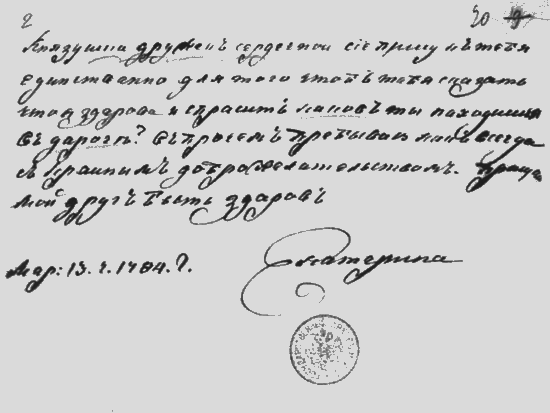 2 40
Князушка дружекъ сердечной сіе пишу къ тебѣ
единственно для того чтобъ тебя сказать
что я здарова и спрасить каковъ ты находишься
въ дароги? въпротчемъ пребываю какъ всегда
съ крайнымъ доброжелательствомъ. Прощай
мой другъ бысть здаровъ
Мар: 13. ч. 1784. г.
Екатерина